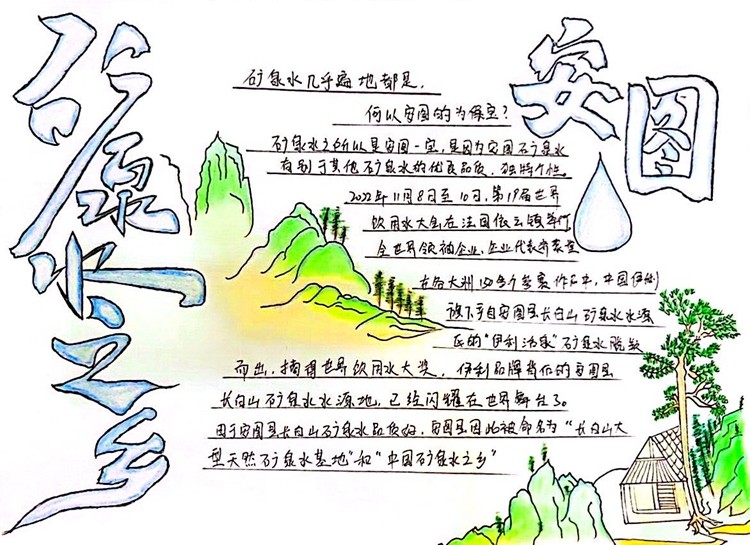 安图
矿泉水之乡
矿泉水几乎遍地都是，
何以安图的为保宝？
矿泉水之所以是安图一宝，是因为安图矿泉水
有别于其他矿泉水的优良品质、独特个性。
2022年11月8日至10日，第19届世界
饮用水大会在法国依云镇举行
全世界领袖企业、企业代表齐聚
在各大洲150多个参赛作品中，中国伊利
旗下于自安图县长白山矿泉水水源
的"伊利活泉"矿泉水脱颖
而出，摘得世界饮用水大奖，伊利品牌背后的安图县
长白山矿泉水水源地，已经闪耀在世界舞台了。
由于安图县长白山矿泉水品质好，安图县因此被命名为"长白山大
型天然矿泉水基地"和"中国矿泉水之乡"